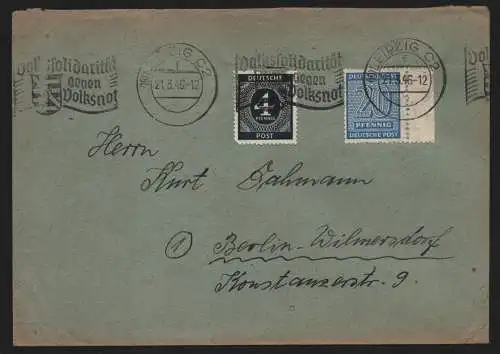 Volkssolidarität
gegen
Volksnot
LEIPZIG C2
21.3.46-12
Volkssolidarität
gegen
Volksnot
LEIPZIG C2
3.46-12
DEUTSCHE
4
PFENNIG
POST
DEUTSCHE POST
20
PFENNIG
DEUTSCHE POST
Herrn
Kurt Dahmann
Berlin-Wilmersdorf
Konstanzerstr. 9.